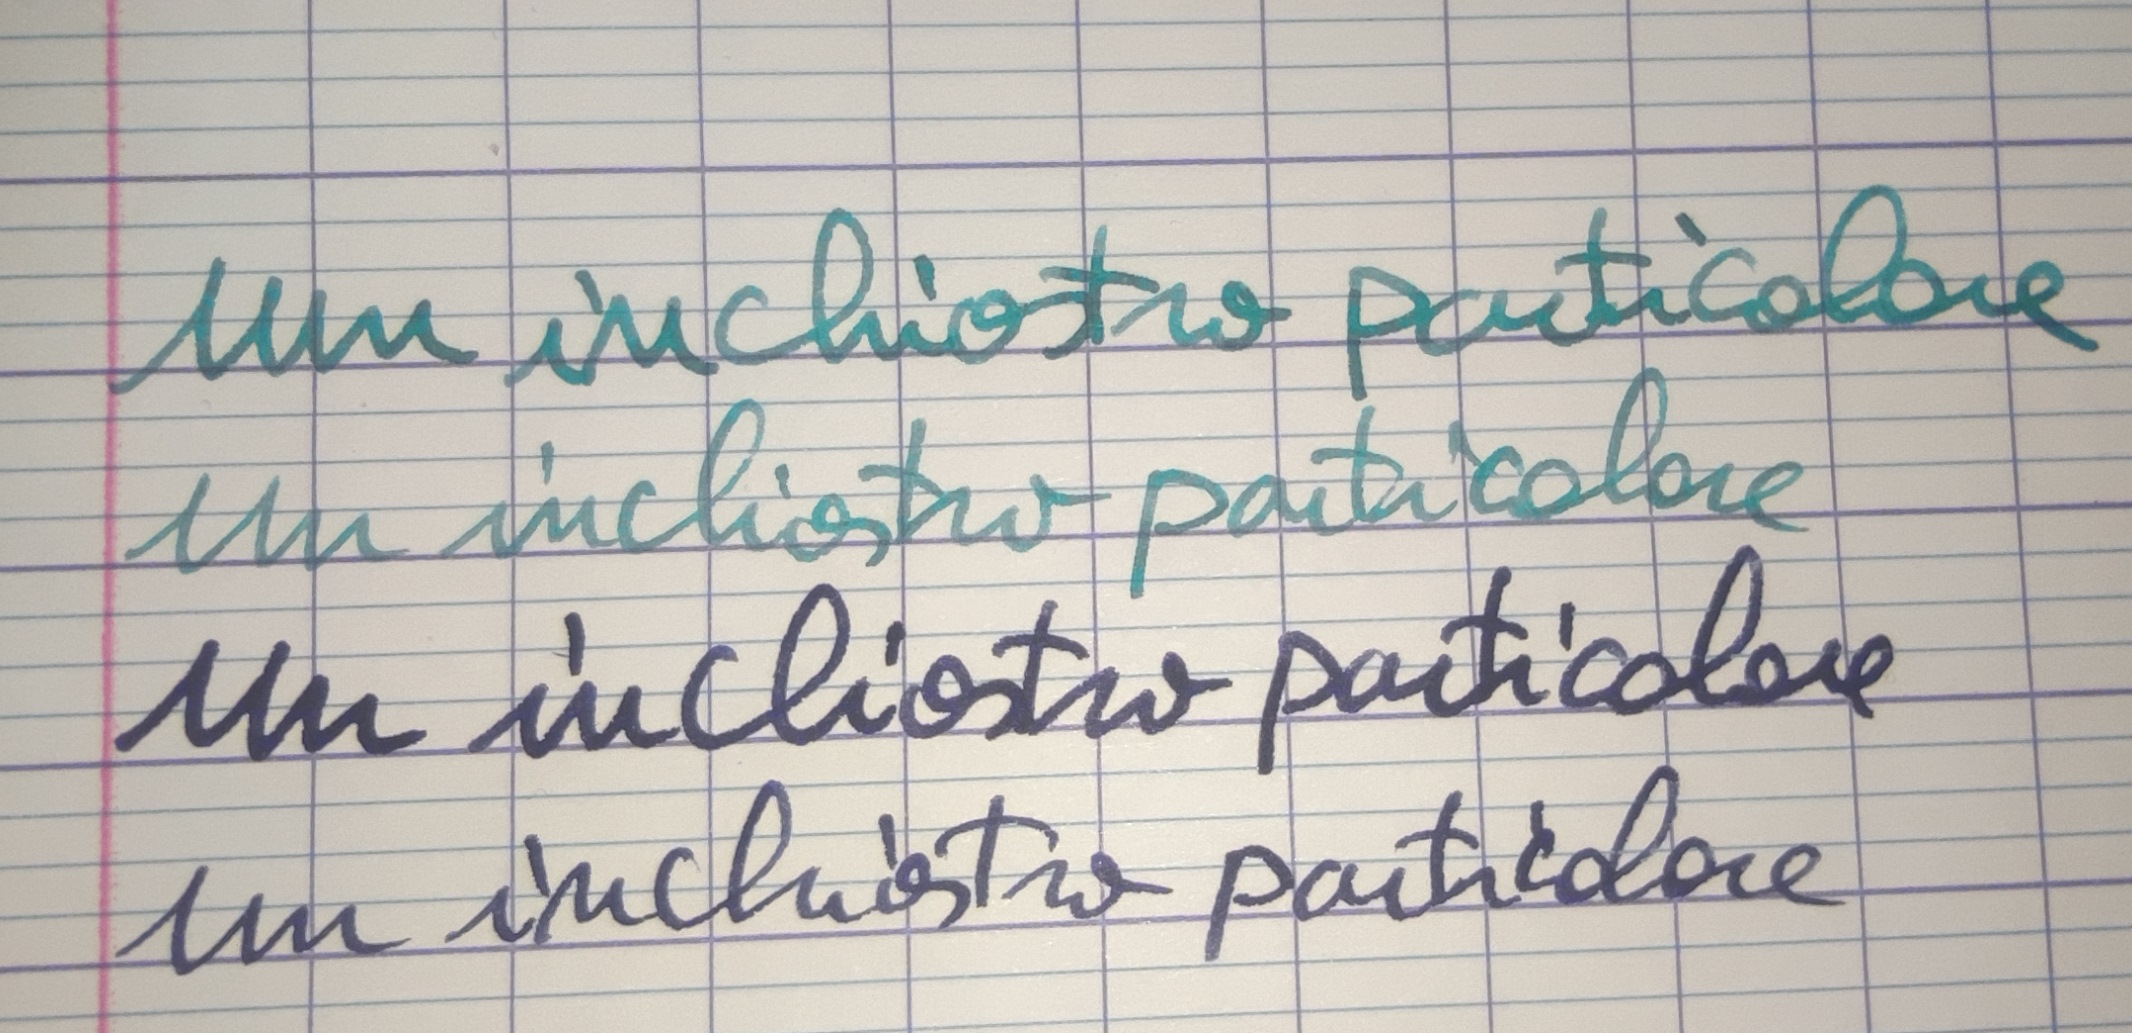 un inchiostro particolare
un inchiostro particolare
un inchiostro particolare
un inchiostro particolare